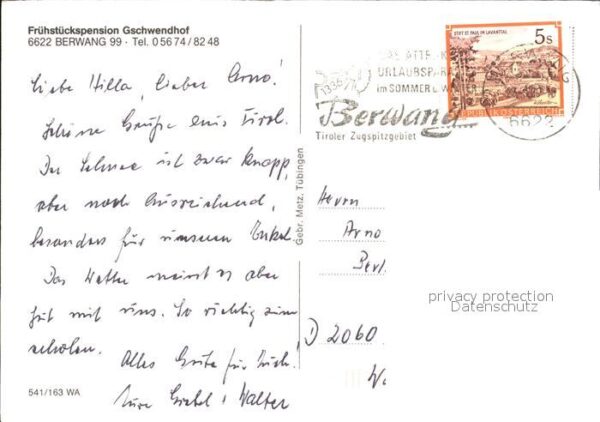 Frühstückspension Gschwendhof
6622 BERWANG 99 · Tel. 0 56 74 / 82 48
Liebe Hilla, lieber Arno!
Schöne Grüße aus Tirol.
Der Schnee ist zwar knapp,
aber noch ausreichend,
besonders für unseren Enkel.
Das Wetter meint es aber
gut mit uns. So richtig zum
erholen.
Alles Gute für Euch!
Eure Gretel + Walter
541/163 WA
Gebr. Metz, Tübingen
STIFT ST. PAUL IM LAVANTTAL
5s
REPUBLIK ÖSTERREICH
URLAUBSPAR
im SOMMER u. W
Berwang
Tiroler Zugspitzgebiet
6622
Herrn
Arno
D 2060
privacy protection
Datenschutz